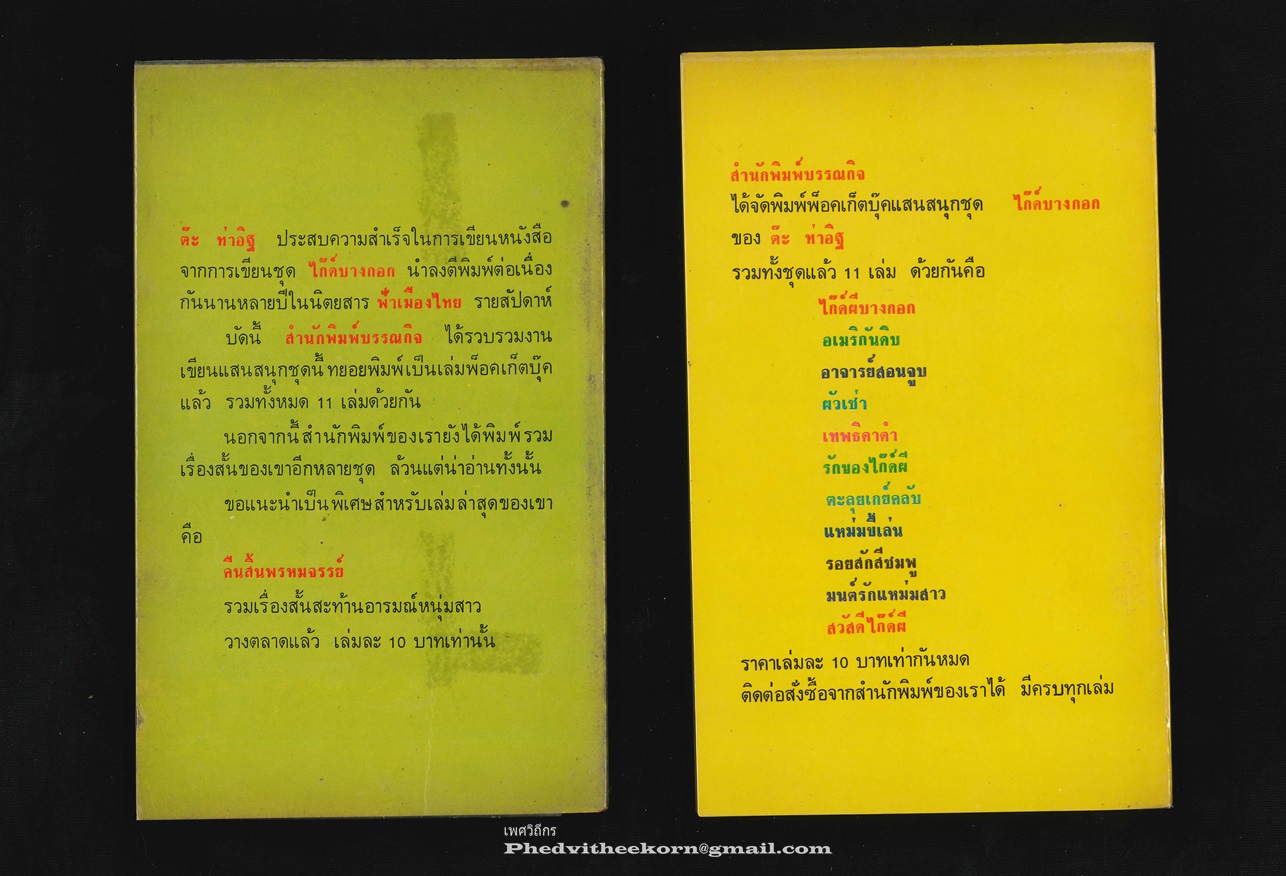 ต๊ะ ท่าอิฐ ประสบความสำเร็จในการเขียนหนังสือ
จากการเขียนชุด ไก๊ด์บางกอก นำลงตีพิมพ์ต่อเนื่อง
กันนานหลายปีในนิตยสาร ฟ้าเมืองไทย รายสัปดาห์
บัดนี้ สำนักพิมพ์บรรณกิจ ได้รวบรวมงาน
เขียนแสนสนุกชุดนี้ ทยอยพิมพ์เป็นเล่มพ็อคเก็ตบุ๊ค
แล้ว รวมทั้งหมด 11 เล่มด้วยกัน
นอกจากนี้ สำนักพิมพ์ของเรายังได้พิมพ์รวม
เรื่องสั้นของเขาอีกหลายชุด ล้วนแต่น่าอ่านทั้งนั้น
ขอแนะนำเป็นพิเศษสำหรับเล่มล่าสุดของเขา
คือ
คืนสิ้นพรหมจรรย์
รวมเรื่องสั้นสะท้านอารมณ์หนุ่มสาว
วางตลาดแล้ว เล่มละ 10 บาทเท่านั้น
สำนักพิมพ์บรรณกิจ
ได้จัดพิมพ์พ็อคเก็ตบุ๊คแสนสนุกชุด ไก๊ด์บางกอก
ของ ต๊ะ ท่าอิฐ
รวมทั้งชุดแล้ว 11 เล่ม ด้วยกันคือ
ไก๊ด์ผีบางกอก
อเมริกันดิบ
อาจารย์สอนจูบ
ผัวเช่า
เทพธิดาดำ
รักของไก๊ด์ผี
ตะลุยเกย์คลับ
แหม่มขี้เล่น
รอยสักสีชมพู
มนต์รักแหม่มสาว
สวัสดีไก๊ด์ผี
ราคาเล่มละ 10 บาทเท่ากันหมด
ติดต่อสั่งซื้อจากสำนักพิมพ์ของเราได้ มีครบทุกเล่ม
เพศวิถีกร
Phedvitheekorn@gmail.com